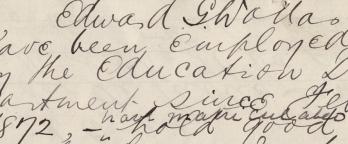 Edward G Wallas
have been employed
the Education D
artment since Fe
1872, - have matriculated
hold good